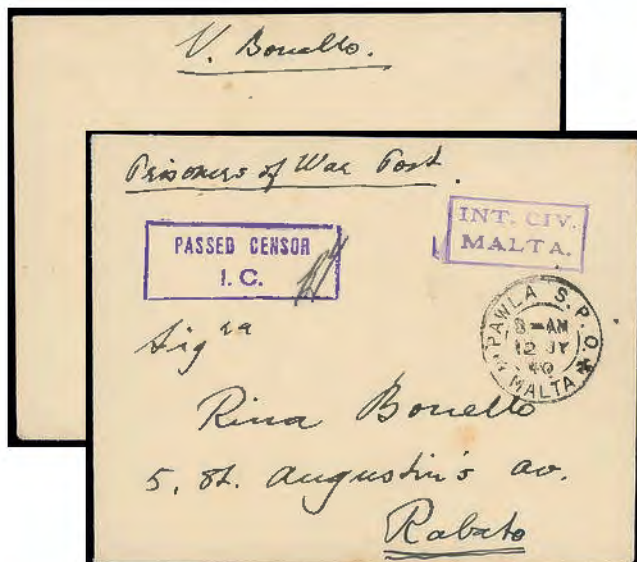 V. Bonello.
Prisoners of War Post.
PASSED CENSOR
I. C.
INT. CIV.
MALTA.
PAWLA S.P.O.
8-AM
12 JY
40
MALTA
Sigra
Rina Bonello
5, St. Augustin's av.
Rabato